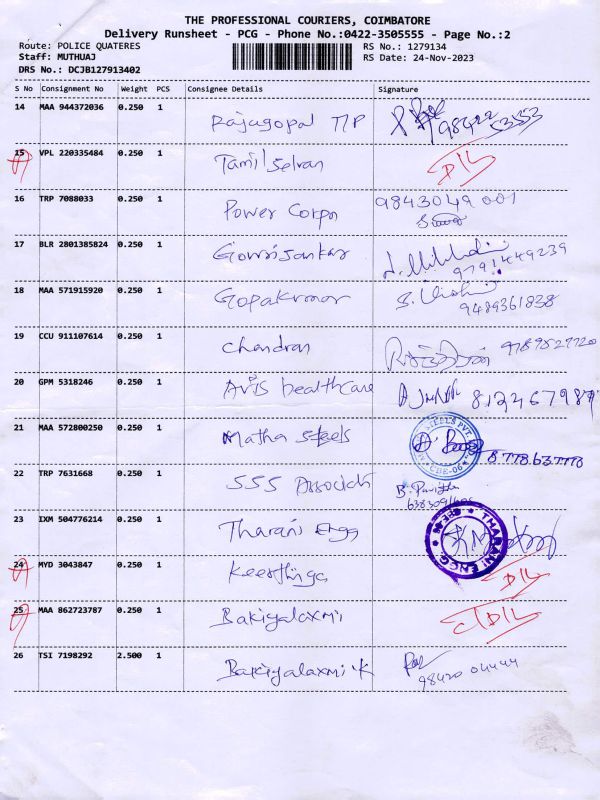 THE PROFESSIONAL COURIERS, COIMBATORE
Delivery Runsheet - PCG - Phone No.:0422-3505555 - Page No.:2
Route: POLICE QUATERES RS No.: 1279134
Staff: MUTHUAJ RS Date: 24-Nov-2023
DRS No.: DCJB127913402
S No Consignment No Weight PCS Consignee Details Signature
14 MAA 944372036 0.250 1 Rajagopal T/P 98422 53553
15 VPL 220335484 0.250 1 Tamil Selvan D/L
16 TRP 7088033 0.250 1 Power Corpn 9843049 001
17 BLR 2801385824 0.250 1 Gowrisankar 9791449239
18 MAA 571915920 0.250 1 Gopakumar 9489361838
19 CCU 911107614 0.250 1 Chandran
20 GPM 5318246 0.250 1 Avis healthcare
21 MAA 572800250 0.250 1 Matha Steels
22 TRP 7631668 0.250 1 SSS
23 IXM 504776214 0.250 1 Tharani Engg THARANI ENGG
24 MYD 3043847 0.250 1 D/L
25 MAA 862723787 0.250 1 Bakiyalaxmi D/L
26 TSI 7198292 2.500 1 Bakiyalaxmi K 98420 04444